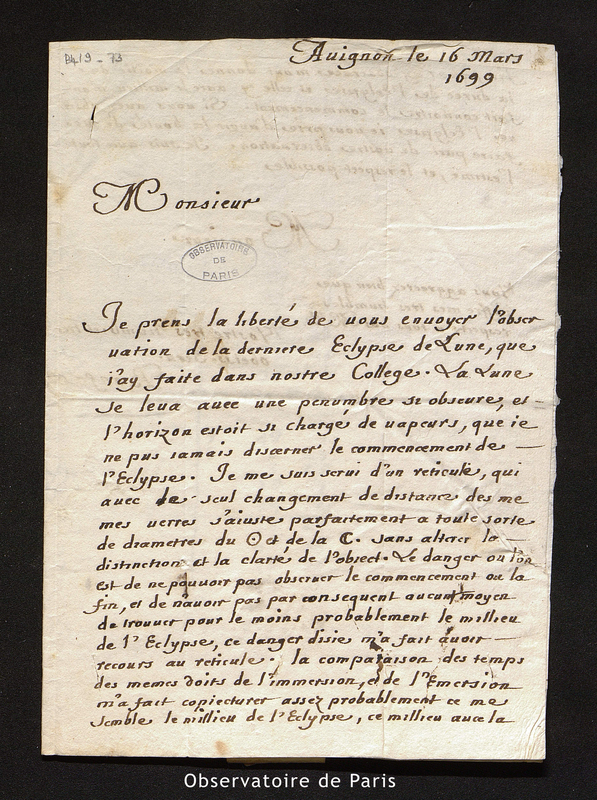 B4.19-73
Auignon le 16 Mars
1699
Monsieur
OBSERVATOIRE
DE
PARIS
Je prens la liberté de uous enuoyer l'obser
uation de la derniere Eclypse de Lune, que
i'ay faite dans nostre College. La Lune
se leua auec une penumbre si obscure, et
l'horizon estoit si chargé de uapeurs, que ie
ne pus iamais discerner le commencement de
l'Eclypse. Je me suis serui d'un reticule, qui
auec le seul changement de distance des me
mes uerres s'aiuste parfaitement a toute sorte
de diametres du ☉ et de la ☾. sans alterer la
distinction et la clarté de l'obiect. Le danger ou l'on
est de ne pouuoir pas obseruer le commencement ou la
fin, et de n'auoir pas par consequent aucun moyen
de trouuer pour le moins probablement le millieu
de l'Eclypse, ce danger disie m'a fait auoir
recours au reticule. la comparaison des temps
des memes doits de l'immersion, et de l'Emersion
m'a fait copiecturer assez probablement ce me
semble le millieu de l'Eclypse, ce milieu auec la
Observatoire de Paris